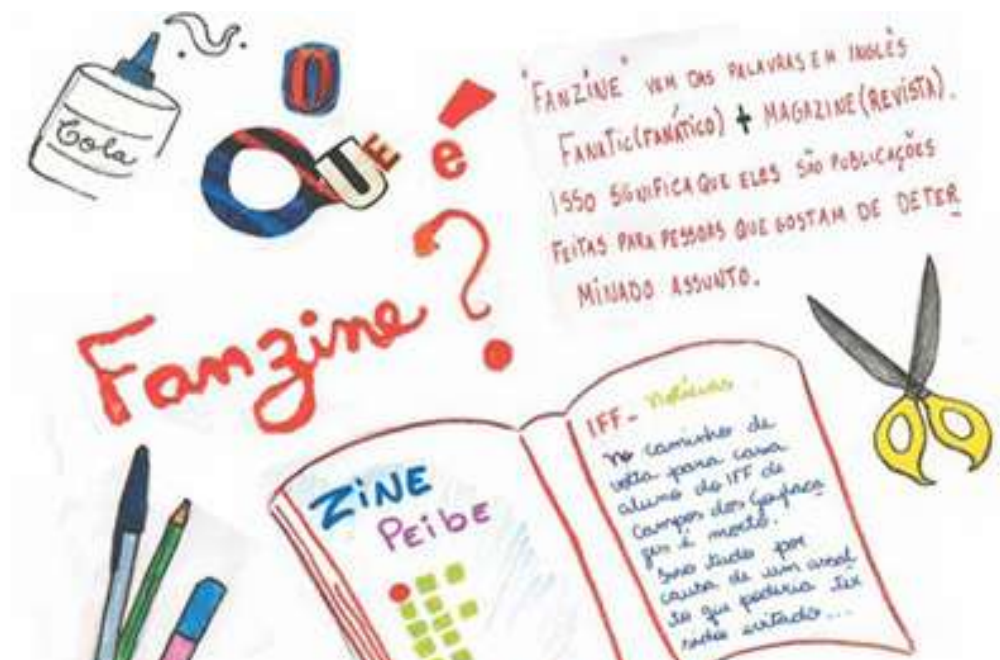 Cola
O
QUE
é
Fanzine?
"FANZINE" VEM DAS PALAVRAS EM INGLÊS
FANATIC(FANÁTICO) + MAGAZINE(REVISTA).
ISSO SIGNIFICA QUE ELES SÃO PUBLICAÇÕES
FEITAS PARA PESSOAS QUE GOSTAM DE DETER
MINADO ASSUNTO.
ZINE
PEIBE
IFF- notícias
no caminho de
volta para casa
aluno do IFF de
Campos dos Goytaca
zes é morto.
Isso tudo por
causa de um assal
to que poderia ter
sido evitado...